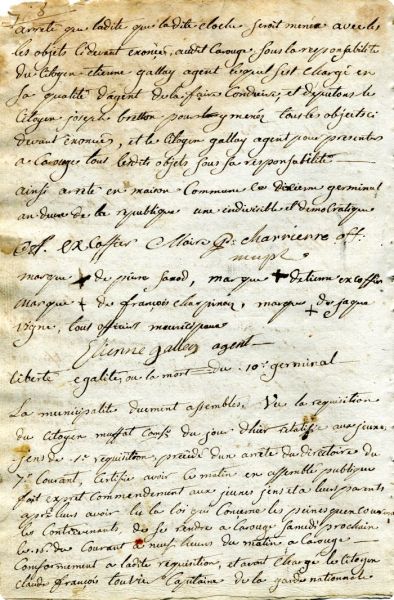 arrete que ladite que ladite cloche seroit menée avec les
les objets cidevant enoncés, audit Carouge sous la responsabilité
du Citoyen etienne gallay agent lequel s'est Chargé en
sa qualité d'agent de la faire Conduire, et deputons le
Citoyen joseph bretton pour y mener tous les objets ci
devant enoncés, et le Citoyen gallay agent pour presenter
a Carouge tous lesdits objets sous sa responsabilité
ainsi arreté en maison Commune Ce dixieme germinal
an deux de la republique une indivisible et democratique
Excoffier Maire charriere off.
mupl
marque + de pierre marque + detienne excoffier
marque + de françois marque + de jaque
vigne, tous officiers municipaux
Etienne gallay agent
liberté egalité, ou la mort du 10e germinal
La municipalité duement assemblée. Vu la requisition
du Citoyen muffat du jour dhier relatife aux jeunes
gens de 1e requisition, precedé d'un arreté du directoire du
7e Courant, Certifie avoir Ce matin en assemblé publique
fait expret Commendement aux jeunes gens et a leurs parents
apres leurs avoir lu la loi qui Concerne les peines
les Contrevenants, de se rendre a Carouge Samedi prochain
le 16 du Courant a neuf heures du matin a Carouge
Conformement a ladite requisition, et avoir Charge le Citoyen
claude françois Capitaine de la garde nationale